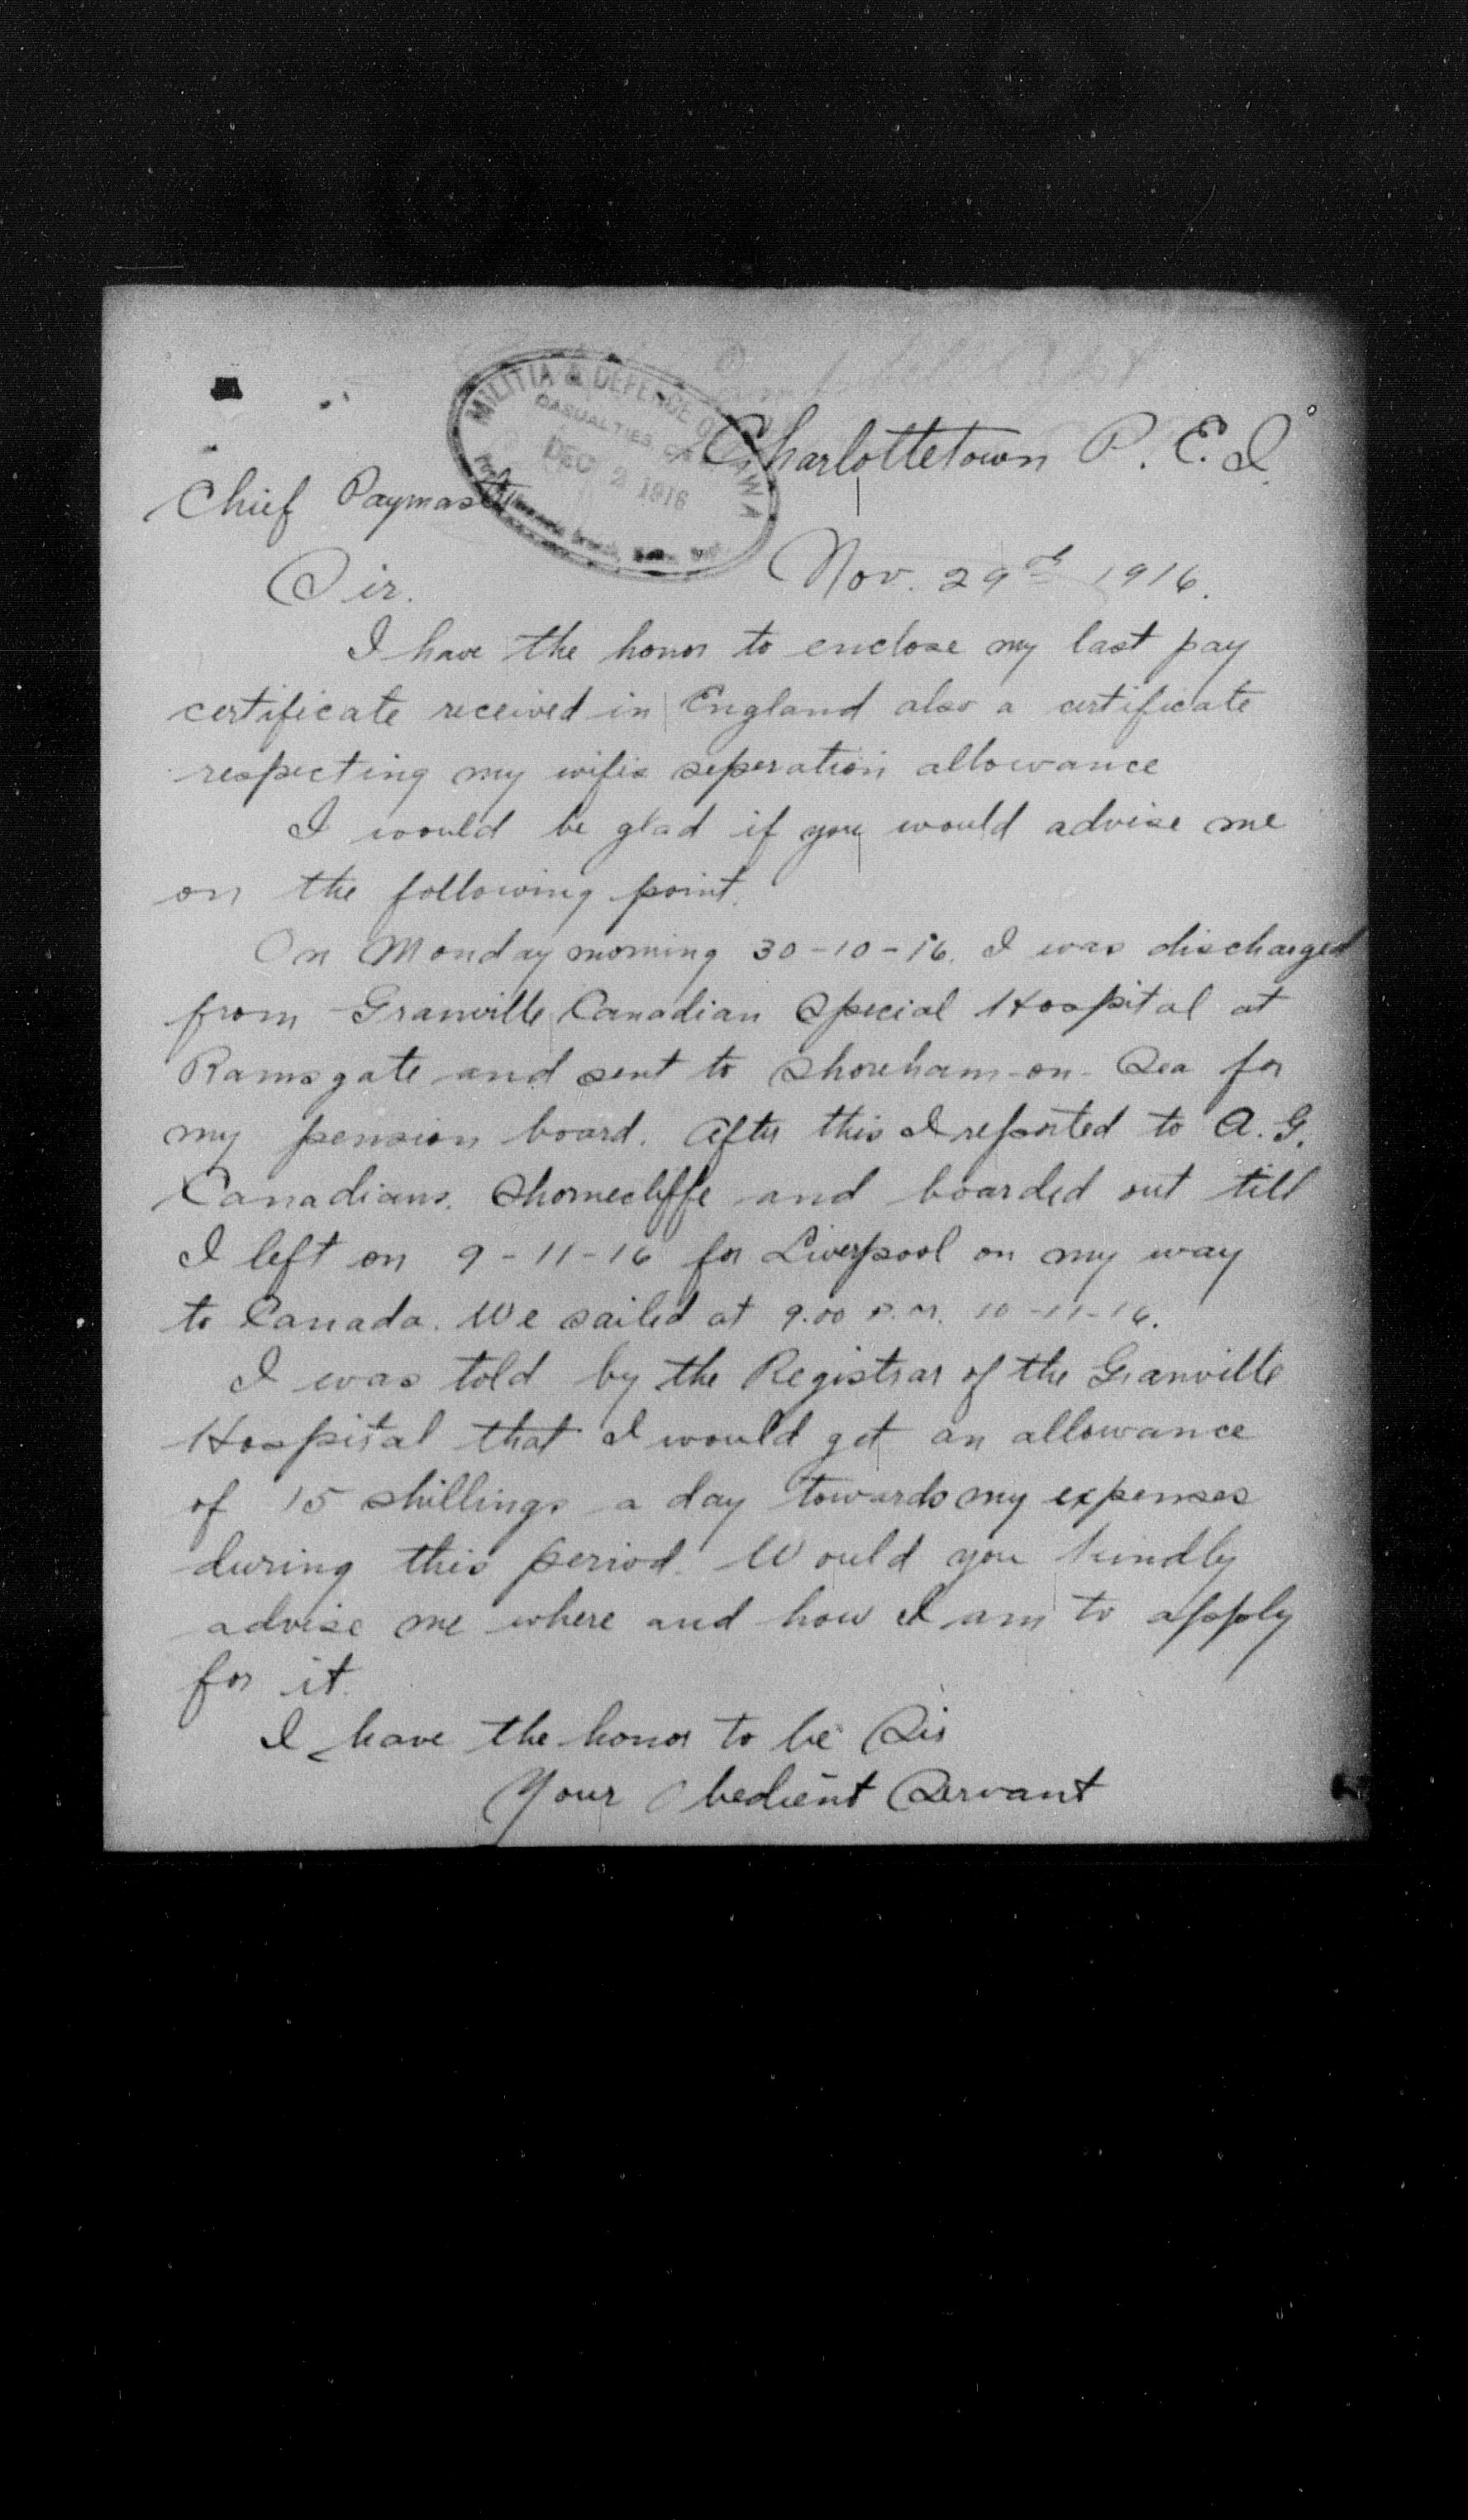 MILITIA & DEFENCE OTTAWA
CASUALTIES
DEC 2 1916
Charlottetown P. E. I.
Chief Paymaster
Nov. 29th 1916.
Sir.
I have the honor to enclose my last pay
certificate received in England also a certificate
respecting my wifes seperation allowance
I would be glad if you would advise me
on the following point.
On Monday morning 30-10-16. I was discharged
from Granville Canadian Special Hospital at
Ramsgate and sent to Shoreham-on-Sea for
my pension board. After this I reported to A. G.
Canadians. Shornecliffe and boarded out till
I left on 9-11-16 for Liverpool on my way
to Canada. We sailed at 9.00 P.M. 10-11-16.
I was told by the Registrar of the Granville
Hospital that I would get an allowance
of 15 shillings a day towards my expenses
during this period. Would you kindly
advise me where and how I am to apply
for it.
I have the honor to be Sir
Your Obedient Servant